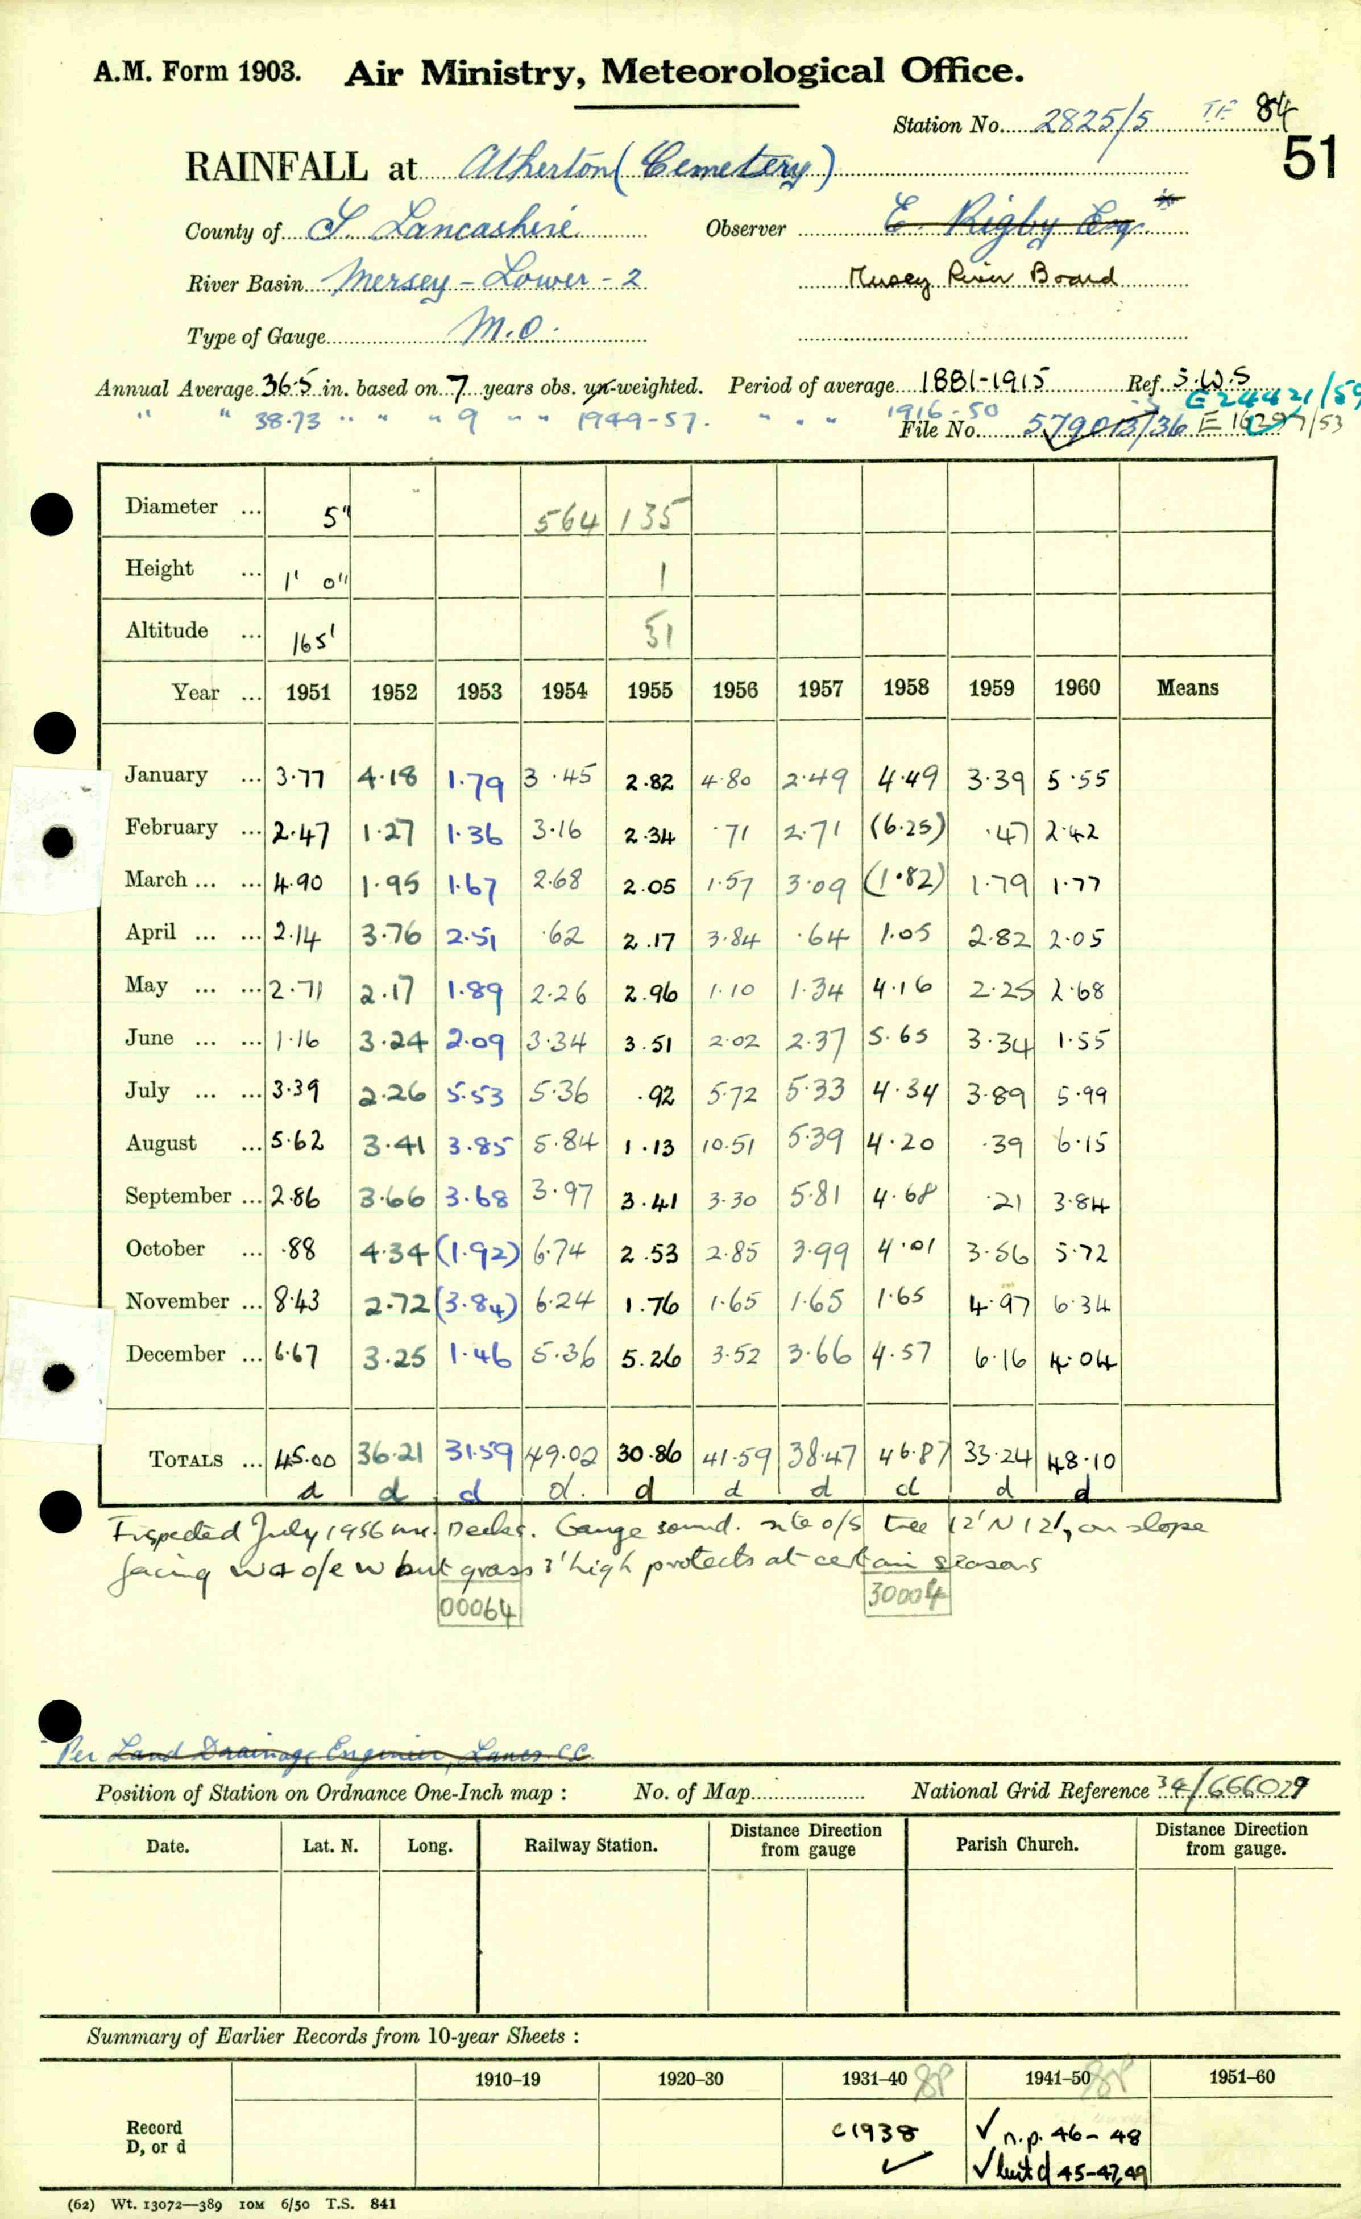 A.M. Form 1903. Air Ministry, Meteorological Office.
Station No. 2825/5 84
51
RAINFALL at Atherton (Cemetery)
County of S. Lancashire Observer E. Rigby Esq
River Basin Mersey - Lower - 2 Mersey River Board
Type of Gauge M.O.
Annual Average 36.5 in. based on 7 years obs. un-weighted. Period of average 1881-1915 Ref. S.W.S
" " 38.73 " " " 9 " " 1949-57. " " " 1916-50 E 24421/59
File No. 579013/36 E 16297/53
Diameter ... 5" 564 135
Height ... 1' 0" 1
Altitude ... 165' 51
Year ... 1951 1952 1953 1954 1955 1956 1957 1958 1959 1960 Means
January ... 3.77 4.18 1.79 3.45 2.82 4.80 2.49 4.49 3.39 5.55
February ... 2.47 1.27 1.36 3.16 2.34 .71 2.71 (6.25) .47 2.42
March ... ... 4.90 1.95 1.67 2.68 2.05 1.57 3.09 (1.82) 1.79 1.77
April ... ... 2.14 3.76 2.51 .62 2.17 3.84 .64 1.05 2.82 2.05
May ... ... 2.71 2.17 1.89 2.26 2.96 1.10 1.34 4.16 2.25 2.68
June ... ... 1.16 3.24 2.09 3.34 3.51 2.02 2.37 5.65 3.34 1.55
July ... ... 3.39 2.26 5.53 5.36 .92 5.72 5.33 4.34 3.89 5.99
August ... 5.62 3.41 3.85 5.84 1.13 10.51 5.39 4.20 .39 6.15
September ... 2.86 3.66 3.68 3.97 3.41 3.30 5.81 4.68 .21 3.84
October ... .88 4.34 (1.92) 6.74 2.53 2.85 3.99 4.01 3.56 5.72
November ... 8.43 2.72 (3.84) 6.24 1.76 1.65 1.65 1.65 4.97 6.34
December ... 6.67 3.25 1.46 5.36 5.26 3.52 3.66 4.57 6.16 4.04
TOTALS ... 45.00 36.21 31.59 49.02 30.86 41.59 38.47 46.87 33.24 48.10
d d d d. d d d d d d
Inspected July 1956 Gauge sound. site o/s tree 12'N 12', on slope
facing W & o/e W but grass 3' high protects at certain seasons
00064 30004
Per Land Drainage Engineer, Lancs C.C.
Position of Station on Ordnance One-Inch map : No. of Map National Grid Reference 34/666029
Date. Lat. N. Long. Railway Station. Distance from gauge Direction Parish Church. Distance Direction from gauge.
Summary of Earlier Records from 10-year Sheets :
1910–19 1920–30 1931–40 1941–50 1951–60
Record D, or d c1938 ✓ ✓ n.p. 46-48
✓ but d 45-47,49
(62) Wt. 13072—389 10M 6/50 T.S. 841